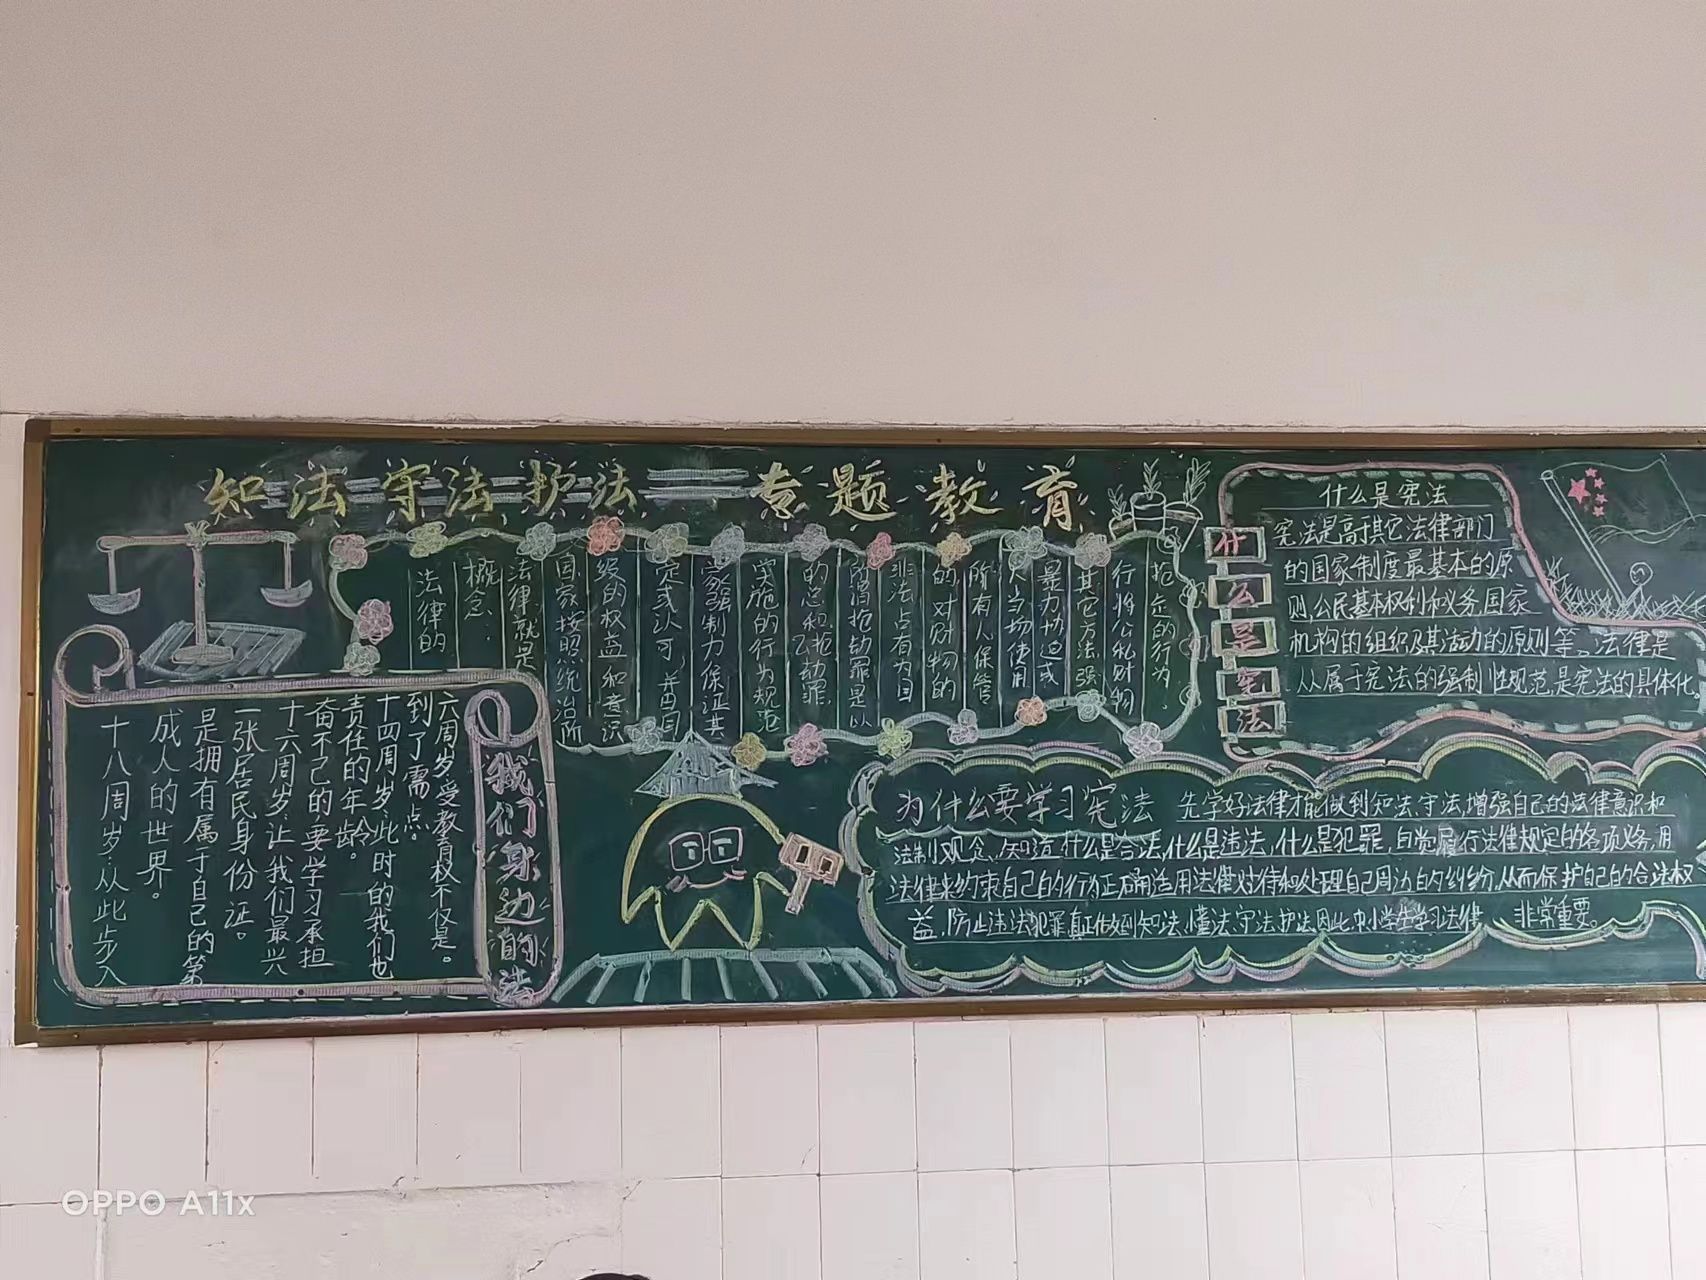 知法守法护法——专题教育
法律的
概念：
法律就是
国家按照统治阶
级的权益和意识
定或认可,并由国
家强制力保证其
实施的行为规范
的总和抢劫罪
所谓抢劫罪是以
非法占有为目
的,对财物的
所有人保管
人当场使用
暴力胁迫或
其它方法强
行将公私财物
抢走的行为.
什么是宪法
什么是宪法
宪法是高于其它法律部门
的国家制度最基本的原
则,公民基本权利和义务,国家
机构的组织及其活动的原则等。法律是
从属于宪法的强制性规范,是宪法的具体化
我们身边的法
六周岁受教育权不仅是。
到了需点。
十四周岁,此时的我们也
责任的年龄。
奋不己的要学习承担
十六周岁,让我们最兴
一张居民身份证。
是拥有属于自己的第
成人的世界。
十八周岁,从此步入
为什么要学习宪法 先学好法律才能做到知法,守法,增强自己的法律意识和
法制观念,知道什么是合法,什么是违法,什么是犯罪,自觉履行法律规定的各项义务,用
法律来约束自己的行为正确运用法律对待和处理自己周边的纠纷,从而保护自己的合法权
益,防止违法犯罪真正做到知法,懂法,守法,护法,因此,中小学生学习法律 非常重要。
OPPO A11x